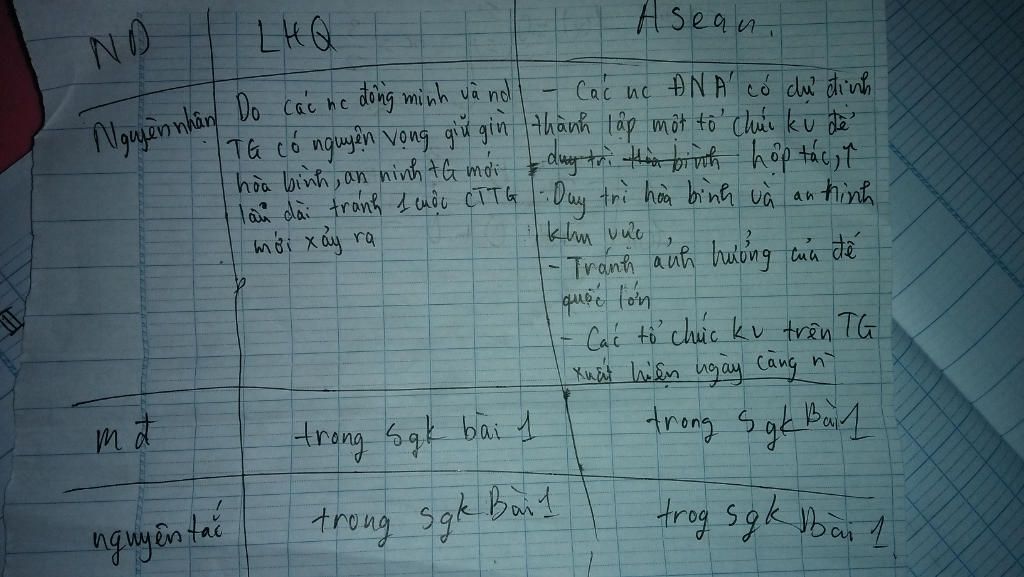 ND LHQ Asean.
Nguyên nhân
Do các nc đồng minh và nd
TG có nguyện vọng giữ gìn
hòa bình, an ninh TG mới
lâu dài tránh 1 cuộc CTTG
mới xảy ra
- Các nc ĐNÁ có dự định
thành lập một tổ chức kv để
duy trì hòa bình hợp tác, ↑
. Duy trì hòa bình và an ninh
khu vực
- Tránh ảnh hưởng của đế
quốc lớn
- Các tổ chức kv trên TG
xuất hiện ngày càng n
mđ trong sgk bài 1 trong sgk Bài 1
nguyên tắc trong sgk Bài 1 trog sgk Bài 1